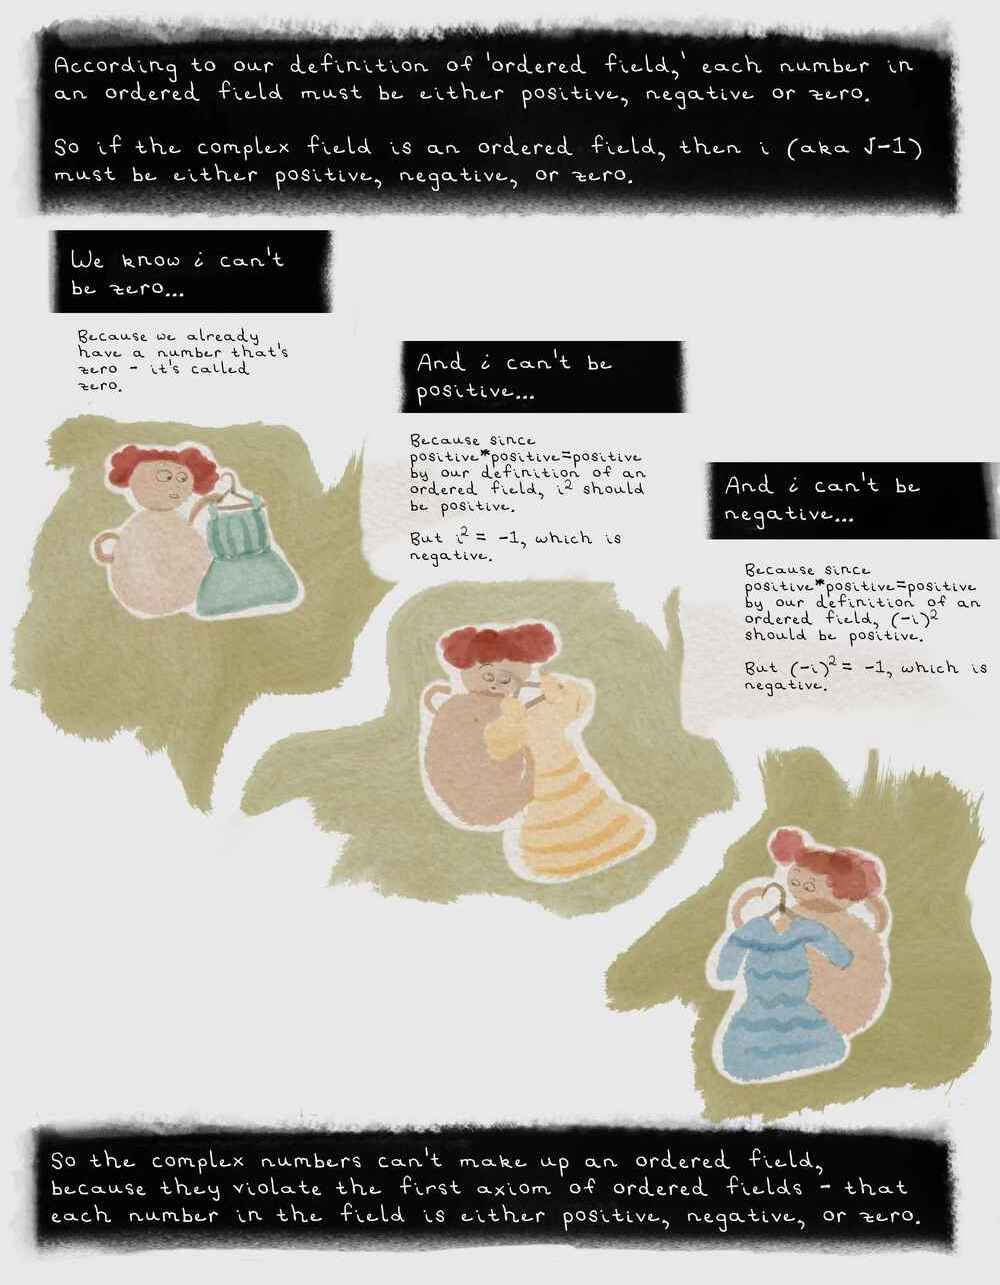 According to our definition of 'ordered field,' each number in
an ordered field must be either positive, negative or zero.
So if the complex field is an ordered field, then i (aka √-1)
must be either positive, negative, or zero.
We know i can't
be zero...
Because we already
have a number that's
zero - it's called
zero.
And i can't be
positive...
Because since
positive*positive=positive
by our definition of an
ordered field, i² should
be positive.
But i² = -1, which is
negative.
And i can't be
negative...
Because since
positive*positive=positive
by our definition of an
ordered field, (-i)²
should be positive.
But (-i)² = -1, which is
negative.
So the complex numbers can't make up an ordered field,
because they violate the first axiom of ordered fields - that
each number in the field is either positive, negative, or zero.